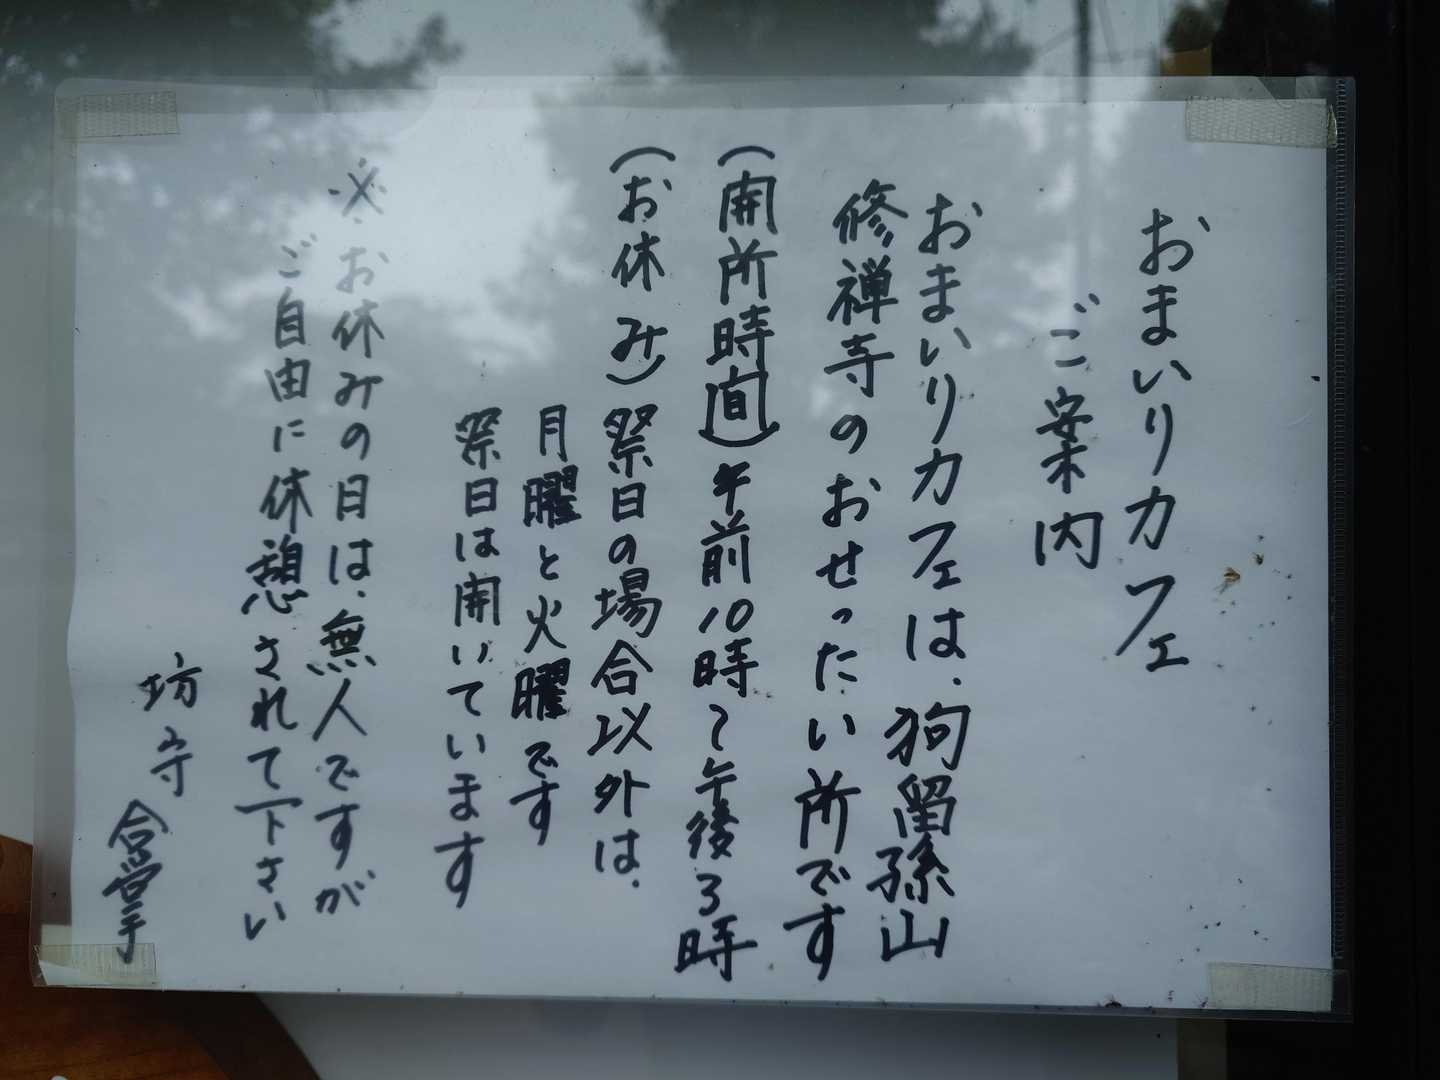 おまいりカフェ
ご案内
おまいりカフェは、狗留孫山
修禅寺のおせったい所です
(開所時間)午前10時〜午後3時
(お休み)祭日の場合以外は、
月曜と火曜です
祭日は開いています
※お休みの日は、無人ですが
ご自由に休憩されて下さい
坊守 合掌